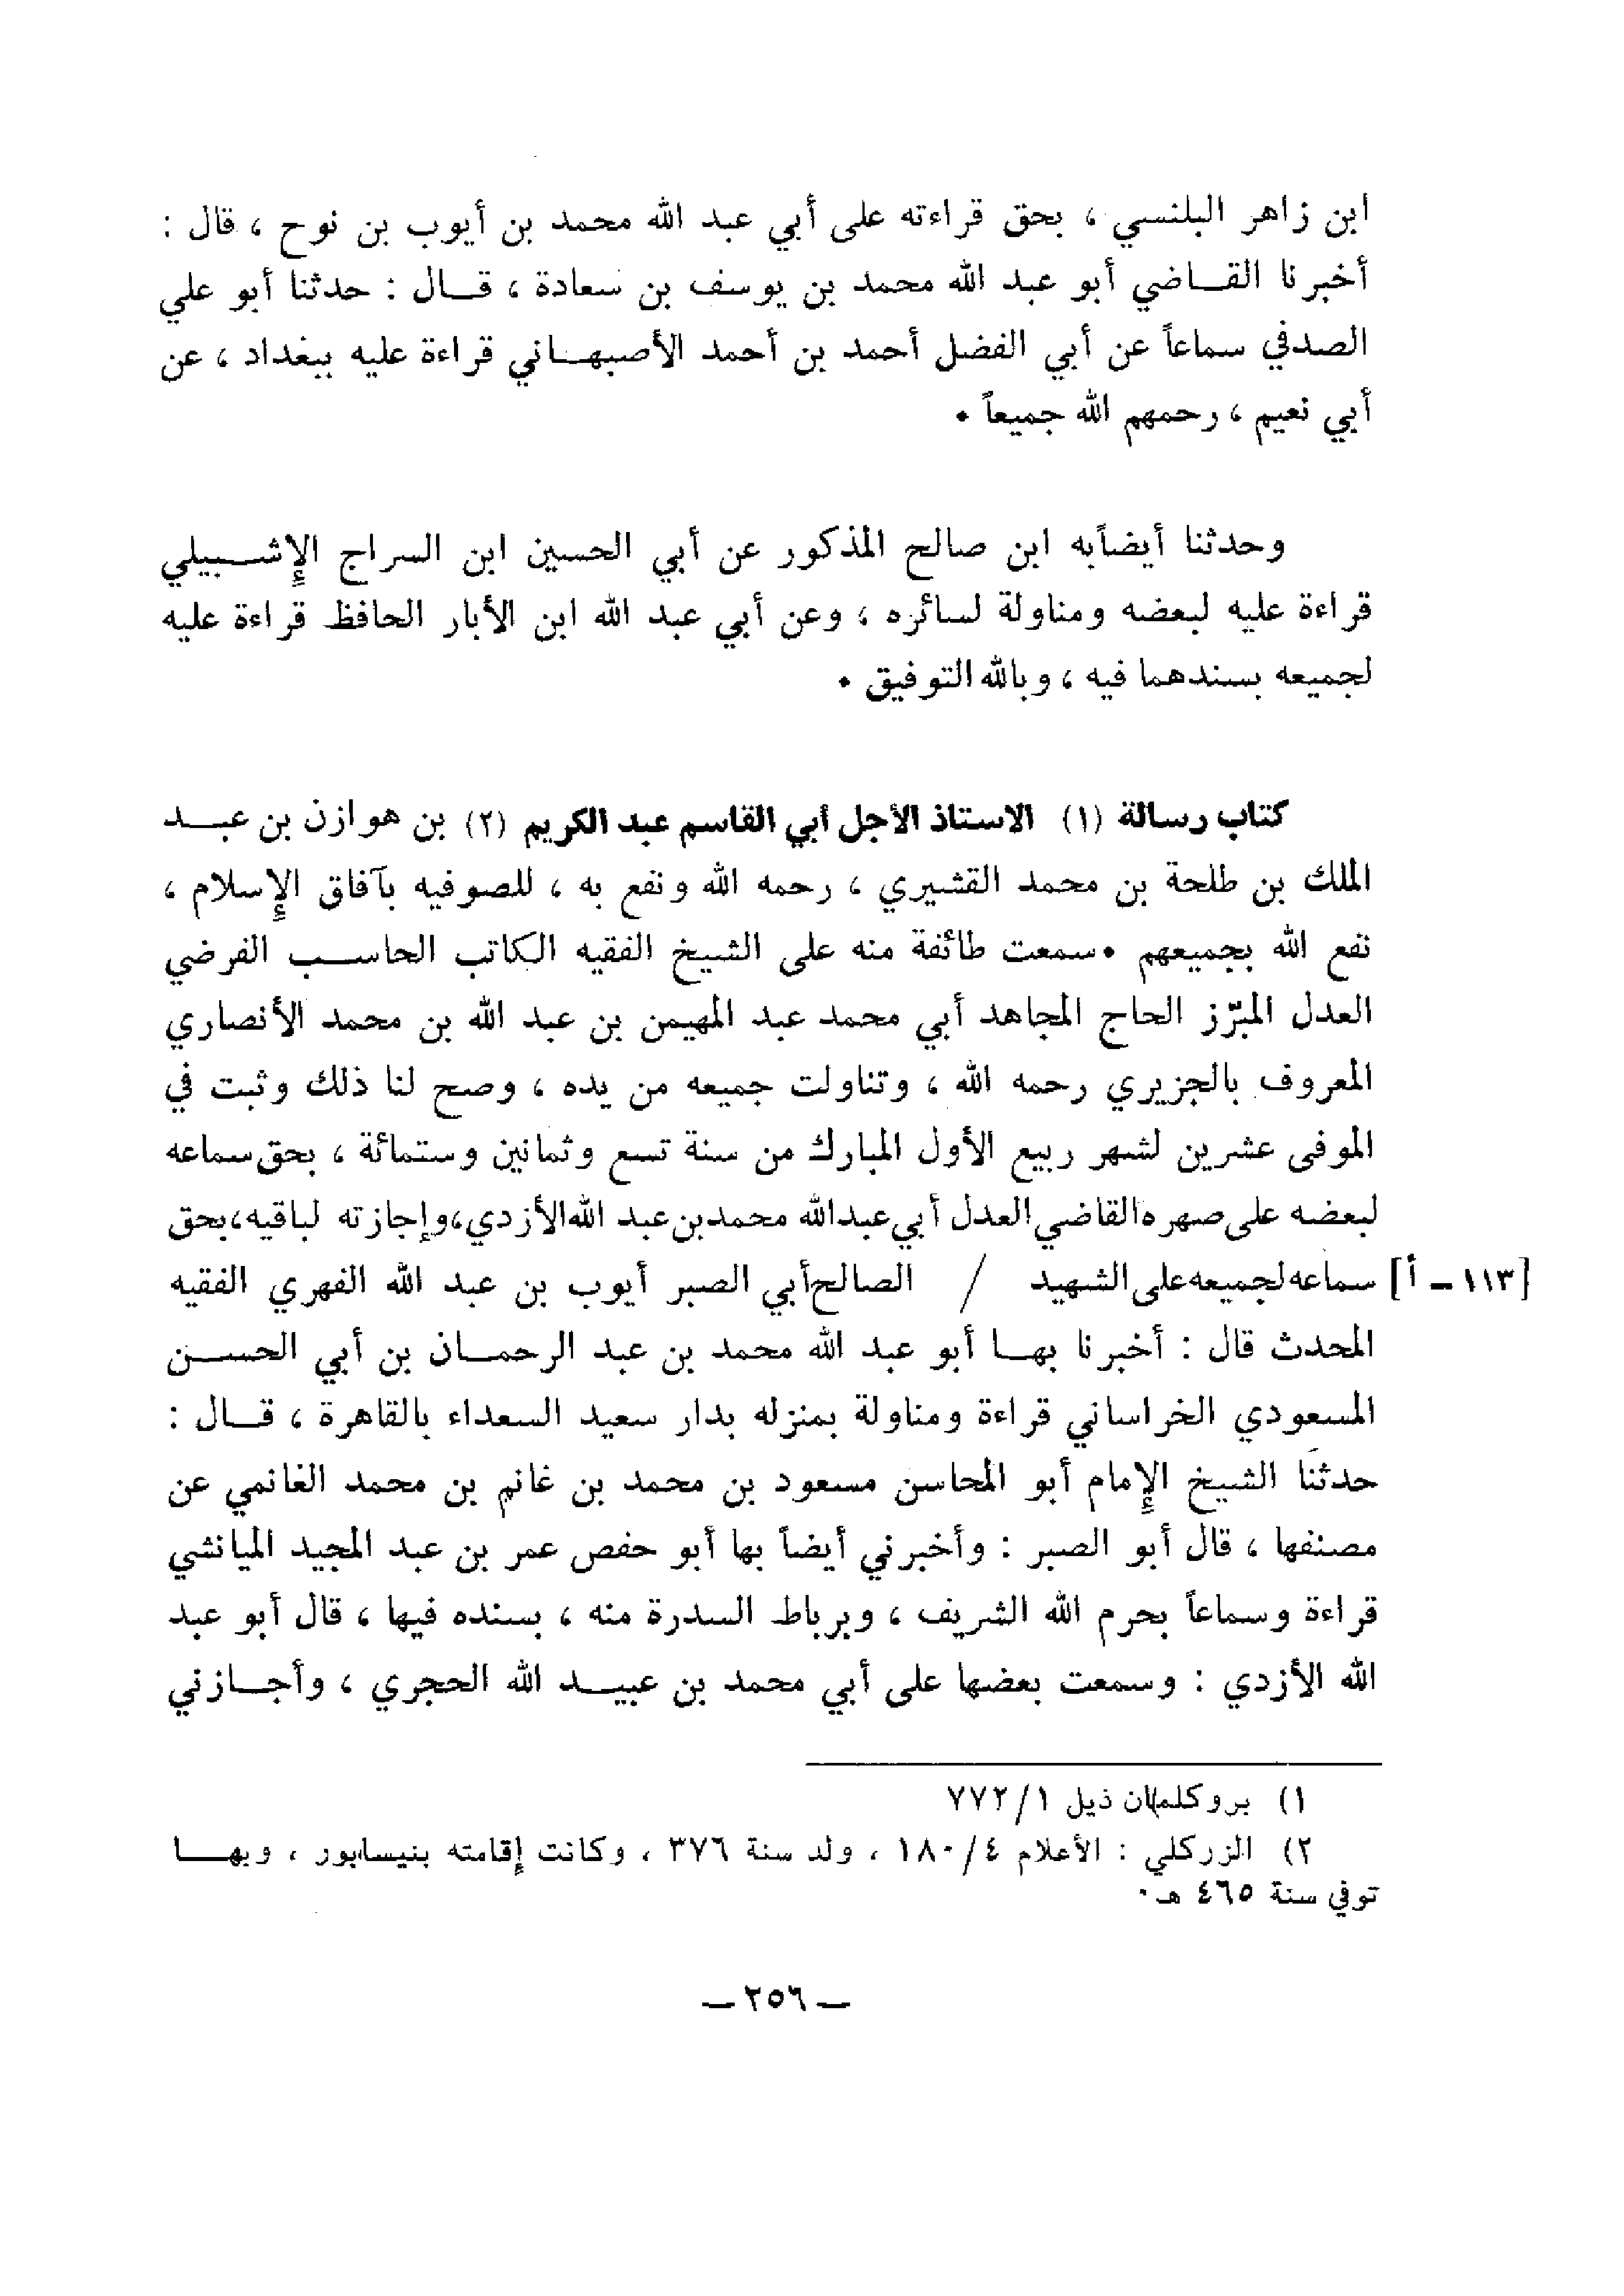 ابن زاهر البلنسي ، بحق قراءته على أبي عبد الله محمد بن أيوب بن نوح ، قال :
أخبرنا القـاضي أبو عبد الله محمد بن يوسف بن سعادة ، قـال : حدثنا أبو علي
الصدفي سماعاً عن أبي الفضل أحمد بن أحمد الأصبهـاني قراءة عليه ببغداد ، عن
أبي نعيم ، رحمهم الله جميعاً .
وحدثنا أيضاً به ابن صالح المذكور عن أبي الحسين ابن السراج الإشـبيلي
قراءة عليه لبعضه ومناولة لسائره ، وعن أبي عبد الله ابن الأبار الحافظ قراءة عليه
لجميعه بسندهما فيه ، وبالله التوفيق .
كتاب رسالة (١) الاستاذ الأجل أبي القاسم عبد الكريم (٢) بن هوازن بن عبـد
الملك بن طلحة بن محمد القشيري ، رحمه الله ونفع به ، للصوفيه بآفاق الإسلام ،
نفع الله بجميعهم . سمعت طائفة منه على الشيخ الفقيه الكاتب الحاسـب الفرضي
العدل المبرّز الحاج المجاهد أبي محمد عبد المهيمن بن عبد الله بن محمد الأنصاري
المعروف بالجزيري رحمه الله ، وتناولت جميعه من يده ، وصح لنا ذلك وثبت في
الموفى عشرين لشهر ربيع الأول المبارك من سنة تسع وثمانين وستمائة ، بحق سماعه
لبعضه على صهره القاضي العدل أبي عبد الله محمد بن عبد الله الأزدي ، وإجازته لباقيه ، بحق
[١١٣ - أ] سماعه لجميعه على الشهيد / الصالح أبي الصبر أيوب بن عبد الله الفهري الفقيه
المحدث قال : أخبرنا بهـا أبو عبد الله محمد بن عبد الرحمـان بن أبي الحسـن
المسعودي الخراساني قراءة ومناولة بمنزله بدار سعيد السعداء بالقاهرة ، قـال :
حدثنا الشيخ الإمام أبو المحاسن مسعود بن محمد بن غانم بن محمد الغانمي عن
مصنفها ، قال أبو الصبر : وأخبرني أيضاً بها أبو حفص عمر بن عبد المجيد الميانشي
قراءة وسماعاً بحرم الله الشريف ، وبرباط السدرة منه ، بسنده فيها ، قال أبو عبد
الله الأزدي : وسمعت بعضها على أبي محمد بن عبيـد الله الحجري ، وأجـازني
١) بروكلمان ذيل ٧٧٢/١
٢) الزركلي : الأعلام ١٨٠/٤ ، ولد سنة ٣٧٦ ، وكانت إقامته بنيسابور ، وبهـا
توفي سنة ٤٦٥ هـ .
— ٢٥٦ —